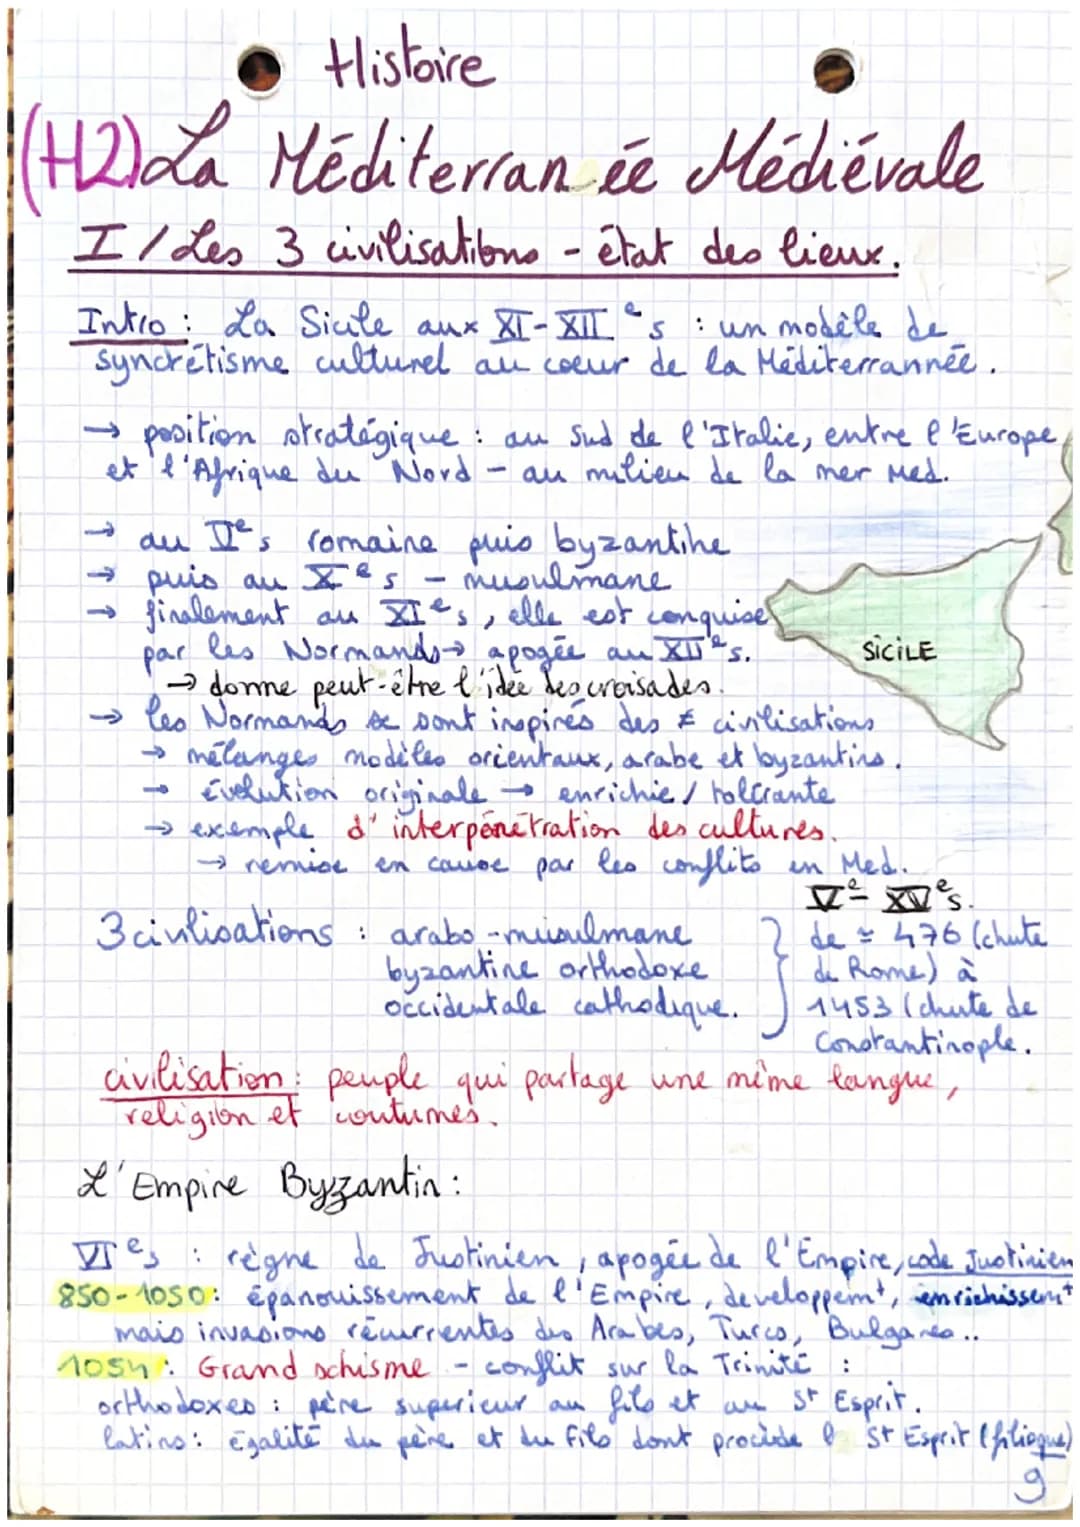 Histoire
(H2) La Méditerranée Médiévale
I / Les 3 civilisations - état des lieux.
Intro : La Sicile aux XI-XII e s : un modèle de
syncrétisme culturel au coeur de la Méditerrannée.
→ position stratégique : au Sud de l'Italie, entre l'Europe
et l'Afrique du Nord - au milieu de la mer Med.
→ au V e s romaine puis byzantine
→ puis au X e s - musulmane
→ finalement au XI e s, elle est conquise
par les Normands → apogée au XII e s.
SICILE
→ donne peut-être l'idée des croisades.
→ les Normands se sont inspirés des ≠ civilisations
→ mélanges modèles orientaux, arabe et byzantins.
→ évolution originale → enrichie / tolérante
→ exemple d'interpénétration des cultures.
→ remise en cause par les conflits en Med.
V e - XV e s.
3 civilisations : arabo-musulmane } de ≃ 476 (chute
byzantine orthodoxe de Rome) à
occidentale catholique. 1453 (chute de
Constantinople.
civilisation : peuple qui partage une même langue,
religion et coutumes.
L'Empire Byzantin :
VI e s : règne de Justinien, apogée de l'Empire, code Justinien
850-1050 : épanouissement de l'Empire, developpemt, enrichissemt
mais invasions récurrentes des Arabes, Turcs, Bulgares..
1054 : Grand schisme - conflit sur la Trinité :
orthodoxes : père superieur au fils et au St Esprit.
latins : égalité du père et du fils dont procède St Esprit (filioque)
9